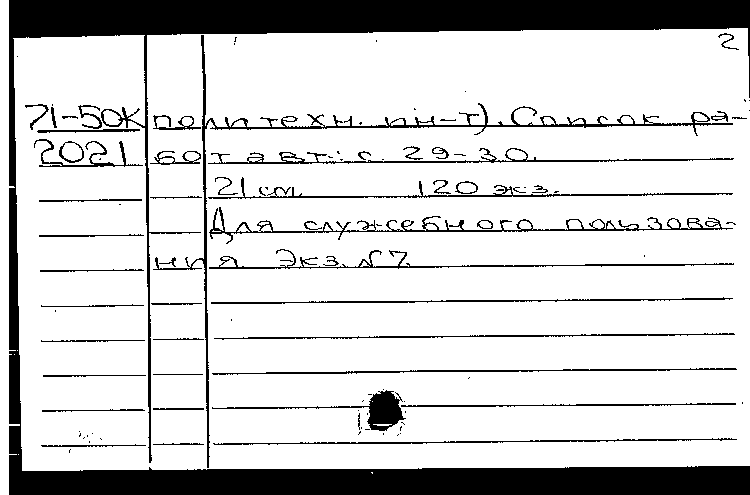 2
71-50К политехн. ин-т). Список ра-
2021 бот авт.: с. 29-30.
21 см. 120 экз.
Для служебного пользова-
ния. Экз. №7.